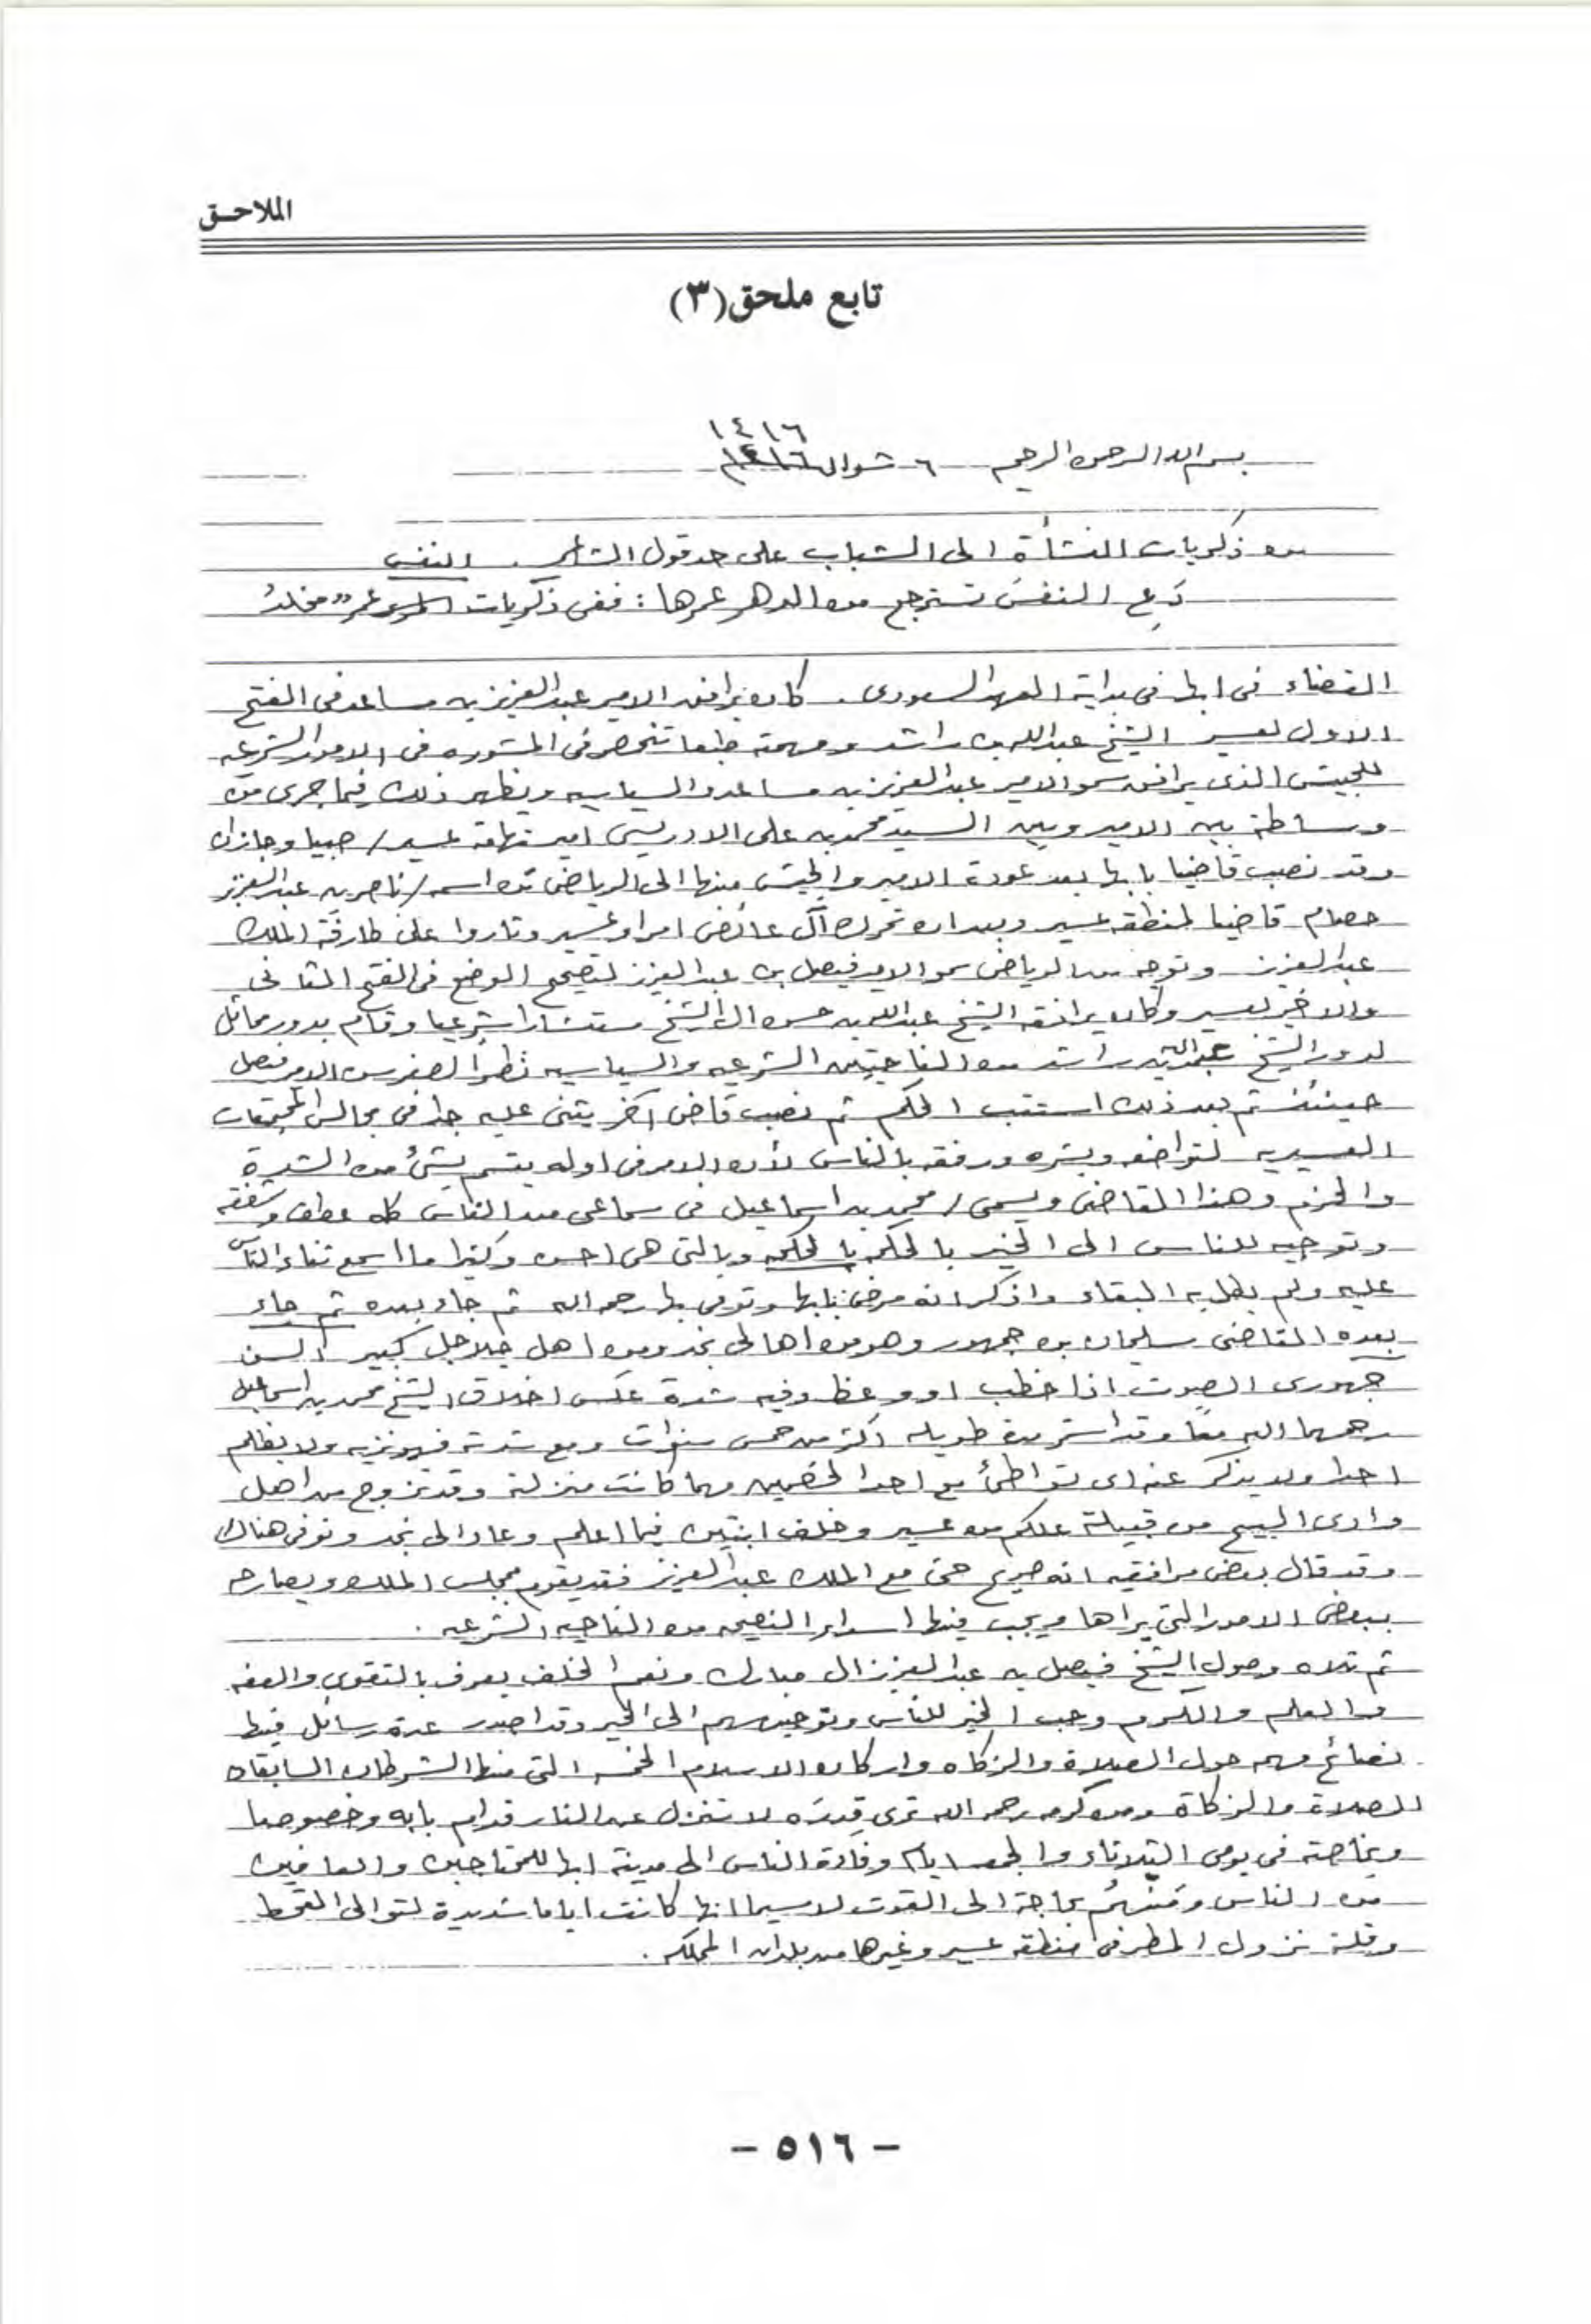 الملاحق
تابع ملحق (٣)
١٤١٦
بسم الله الرحمن الرحيم ٦ شوال ١٤١٦
من ذكريات النشأة الى الشباب على حد قول الشاعر . النفس
دَعِ النفسَ تسترجع من الدهر عمرها : ففى ذكريات عمر مخلدُ
القضاء فى ابها فى بداية العهد السعودى . كان يرافق الامير عبدالعزيز بن مساعد فى الفتح
الاول لعسير الشيخ عبدالله بن راشد ومهمته طبعا تنحصر فى المشوره فى الامور الشرعيه
للجيش الذى يرافق سمو الامير عبدالعزيز بن مساعد والسياسيه ويظهر ذلك فيما جرى من
وساطة بين الامير وبين السيد محمد بن على الادريسى امير تهامة عسير / صبيا وجازان
وقد نصب قاضيا بابها بعد عودة الامير والجيش منها الى الرياض اسمه / ناصر بن عبدالعزيز
حصام قاضيا لمنطقة عسير وبعد ان تحرك آل عائض امراء عسير وثاروا على طارفَة الملك
عبدالعزيز وتوجه من الرياض سمو الامير فيصل بن عبدالعزيز لتصحيح الوضع فى الفتح الثانى
والاخير لعسير وكان يرافقه الشيخ عبدالله بن حسن ال الشيخ مستشارا شرعيا وقام بدور مماثل
لدور الشيخ عبدالله بن راشد من الناحيتين الشرعيه والسياسيه نظراً لصغر سن الامير فيصل
حينئذ ثم بعد ذلك استتب الحكم ثم نصب قاضى آخر يثنى عليه جدا فى مجالس المجتمعات
العسيريه لتواضعه وبشره ورفقه بالناس لأن الامر فى اوله يتسم بشئ من الشدة
والحزم وهذا القاضى ويسمى / محمد بن اسماعيل فى سماعى من الناس كله عطف وشفقه
وتوجيه للناس الى الخير بالحكم بالحكمه وبالتى هى احسن وكثيرا ما اسمع ثناء الناس
عليه ولم يطل به البقاء واذكر انه مرض بابها وتوفى بها رحمه الله ثم جاء بعده ثم جاء
بعده القاضى سليمان بن جمهور وهو من اهالى نجد ومن اهل جلاجل كبير السن
جهورى الصوت اذا خطب او وعظ وفيه شدة عكس اخلاق الشيخ محمد بن اسماعيل
رحمهما الله معًا وقد استمر مدة طويله اكثر من خمس سنوات ومع شدته فهو نزيه ولا يظلم
احدا ولا يذكر عنه اى تواطئ مع احد الخصمين مهما كانت منزلته وقد تزوج من اهل
وادى البيح من قبيلة علكم من عسير وخلف ابنتين فيما اعلم وعاد الى نجد وتوفى هناك
وقد قال بعض مرافقيه انه صريح حتى مع الملك عبدالعزيز فقد يقوم بمجلس الملك ويصارحه
ببعض الامور التى يراها ويجب فيها اسداء النصيحه من الناحيه الشرعيه .
ثم تلاه وصول الشيخ فيصل بن عبدالعزيز ال مبارك ونعم الخلف يعرف بالتقوى والعفه
والعلم والكرم وحب الخير للناس وتوجيههم الى الخير وقد اصدر عدة رسائل فيها
نصائح مهمه حول الصلاة والزكاه واركان الاسلام الخمسه التى منها الشرطان السابقان
الصلاة والزكاة ومن كرمه رحمه الله ترى قِدرَه لا تنزل عن النار قدام بابه وخصوصا
وبخاصة فى يومى الثلاثاء والجمعه ايام وفادة الناس الى مدينة ابها للمحتاجين والعافين
من الناس ومَنْ هُم بحاجة الى القوت لاسيما انها كانت اياما شديدة لتوالى القحط
وقلة نزول المطر فى منطقة عسير وغيرها من بلدان المملكه .
- ٥١٦ -